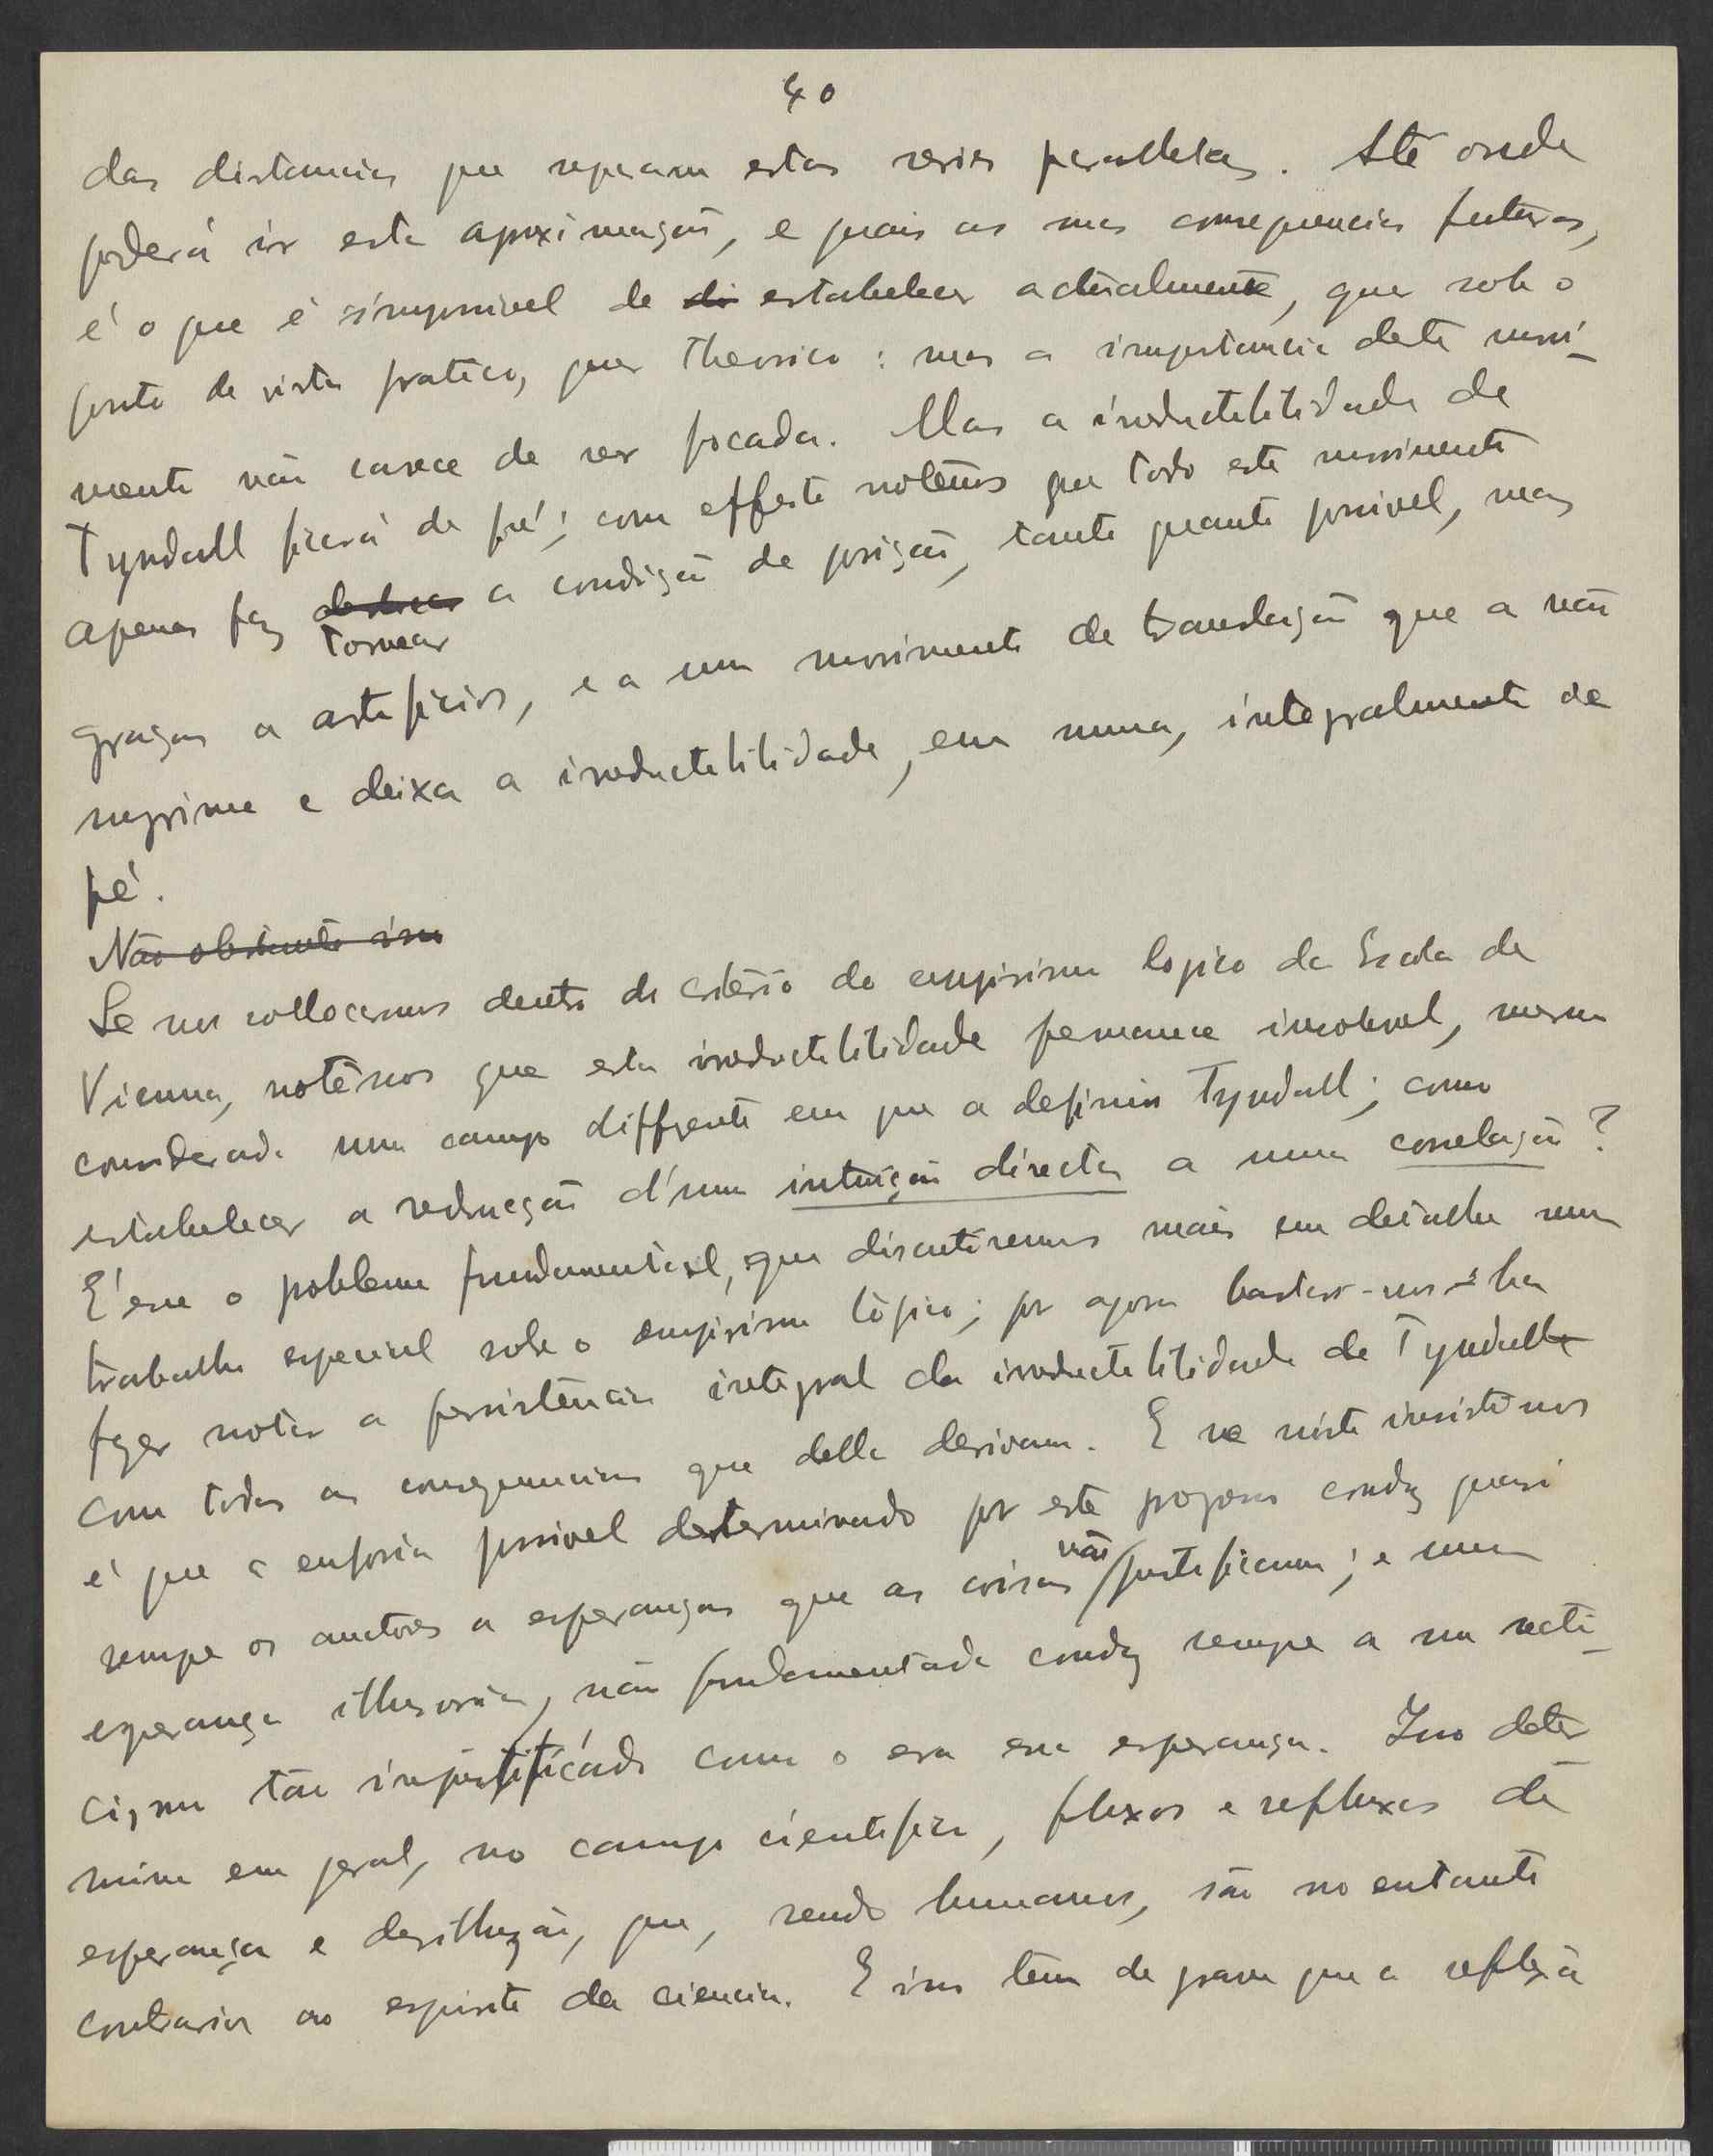 40
das distancias que separam estas series parallelas. Até onde
poderá ir esta aproximação, e quais as suas consequencias futuras,
é o que é impossivel de di estabelecer actualmente, quer sob o
ponto de vista pratico, quer theorico : mas a importancia deste movi-
mento não carece de ser focada. Mas a irreductibilidade de
Tyndall ficará de pé; com effeito notêmos que todo este movimento
apenas faz tornear a condição de posição, tanto quanto possivel, mas
graças a artificios, e a um movimento de translação que a não
supprime e deixa a irreductibilidade, em summa, integralmente de
pé.
Não obstante isso
Se nos collocarmos dentro do critério do empirismo logico da Escola de
Vienna, notêmos que esta irreductibilidade permanece insoluvel, mesmo
considerada num campo differente em que a definiu Tyndall; como
estabelecer a reducção d'uma intuição directa a uma correlação?
É esse o problema fundamental, que discutiremos mais em detalhe num
trabalho especial sobre o empirismo lógico; por agora bastar-nos-ha
fazer notar a persistência integral da irreductibilidade de Tyndall
com todas as consequencias que della derivam. E se nisto insistimos
é que a euforia possivel determinado por este progresso conduz quasi
sempre os auctores a esperanças que as coisas não justificam; e uma
esperança illusoria, não fundamentada conduz sempre a um scéti-
cismo tão injustificado como o era essa esperança. Isso deter
mina em geral, no campo cientifico, fluxos e refluxos de
esperança e desillusão, que, sendo humanos, são no entanto
contrarios ao espirito da ciencia. E isso tem de grave que a reflexão